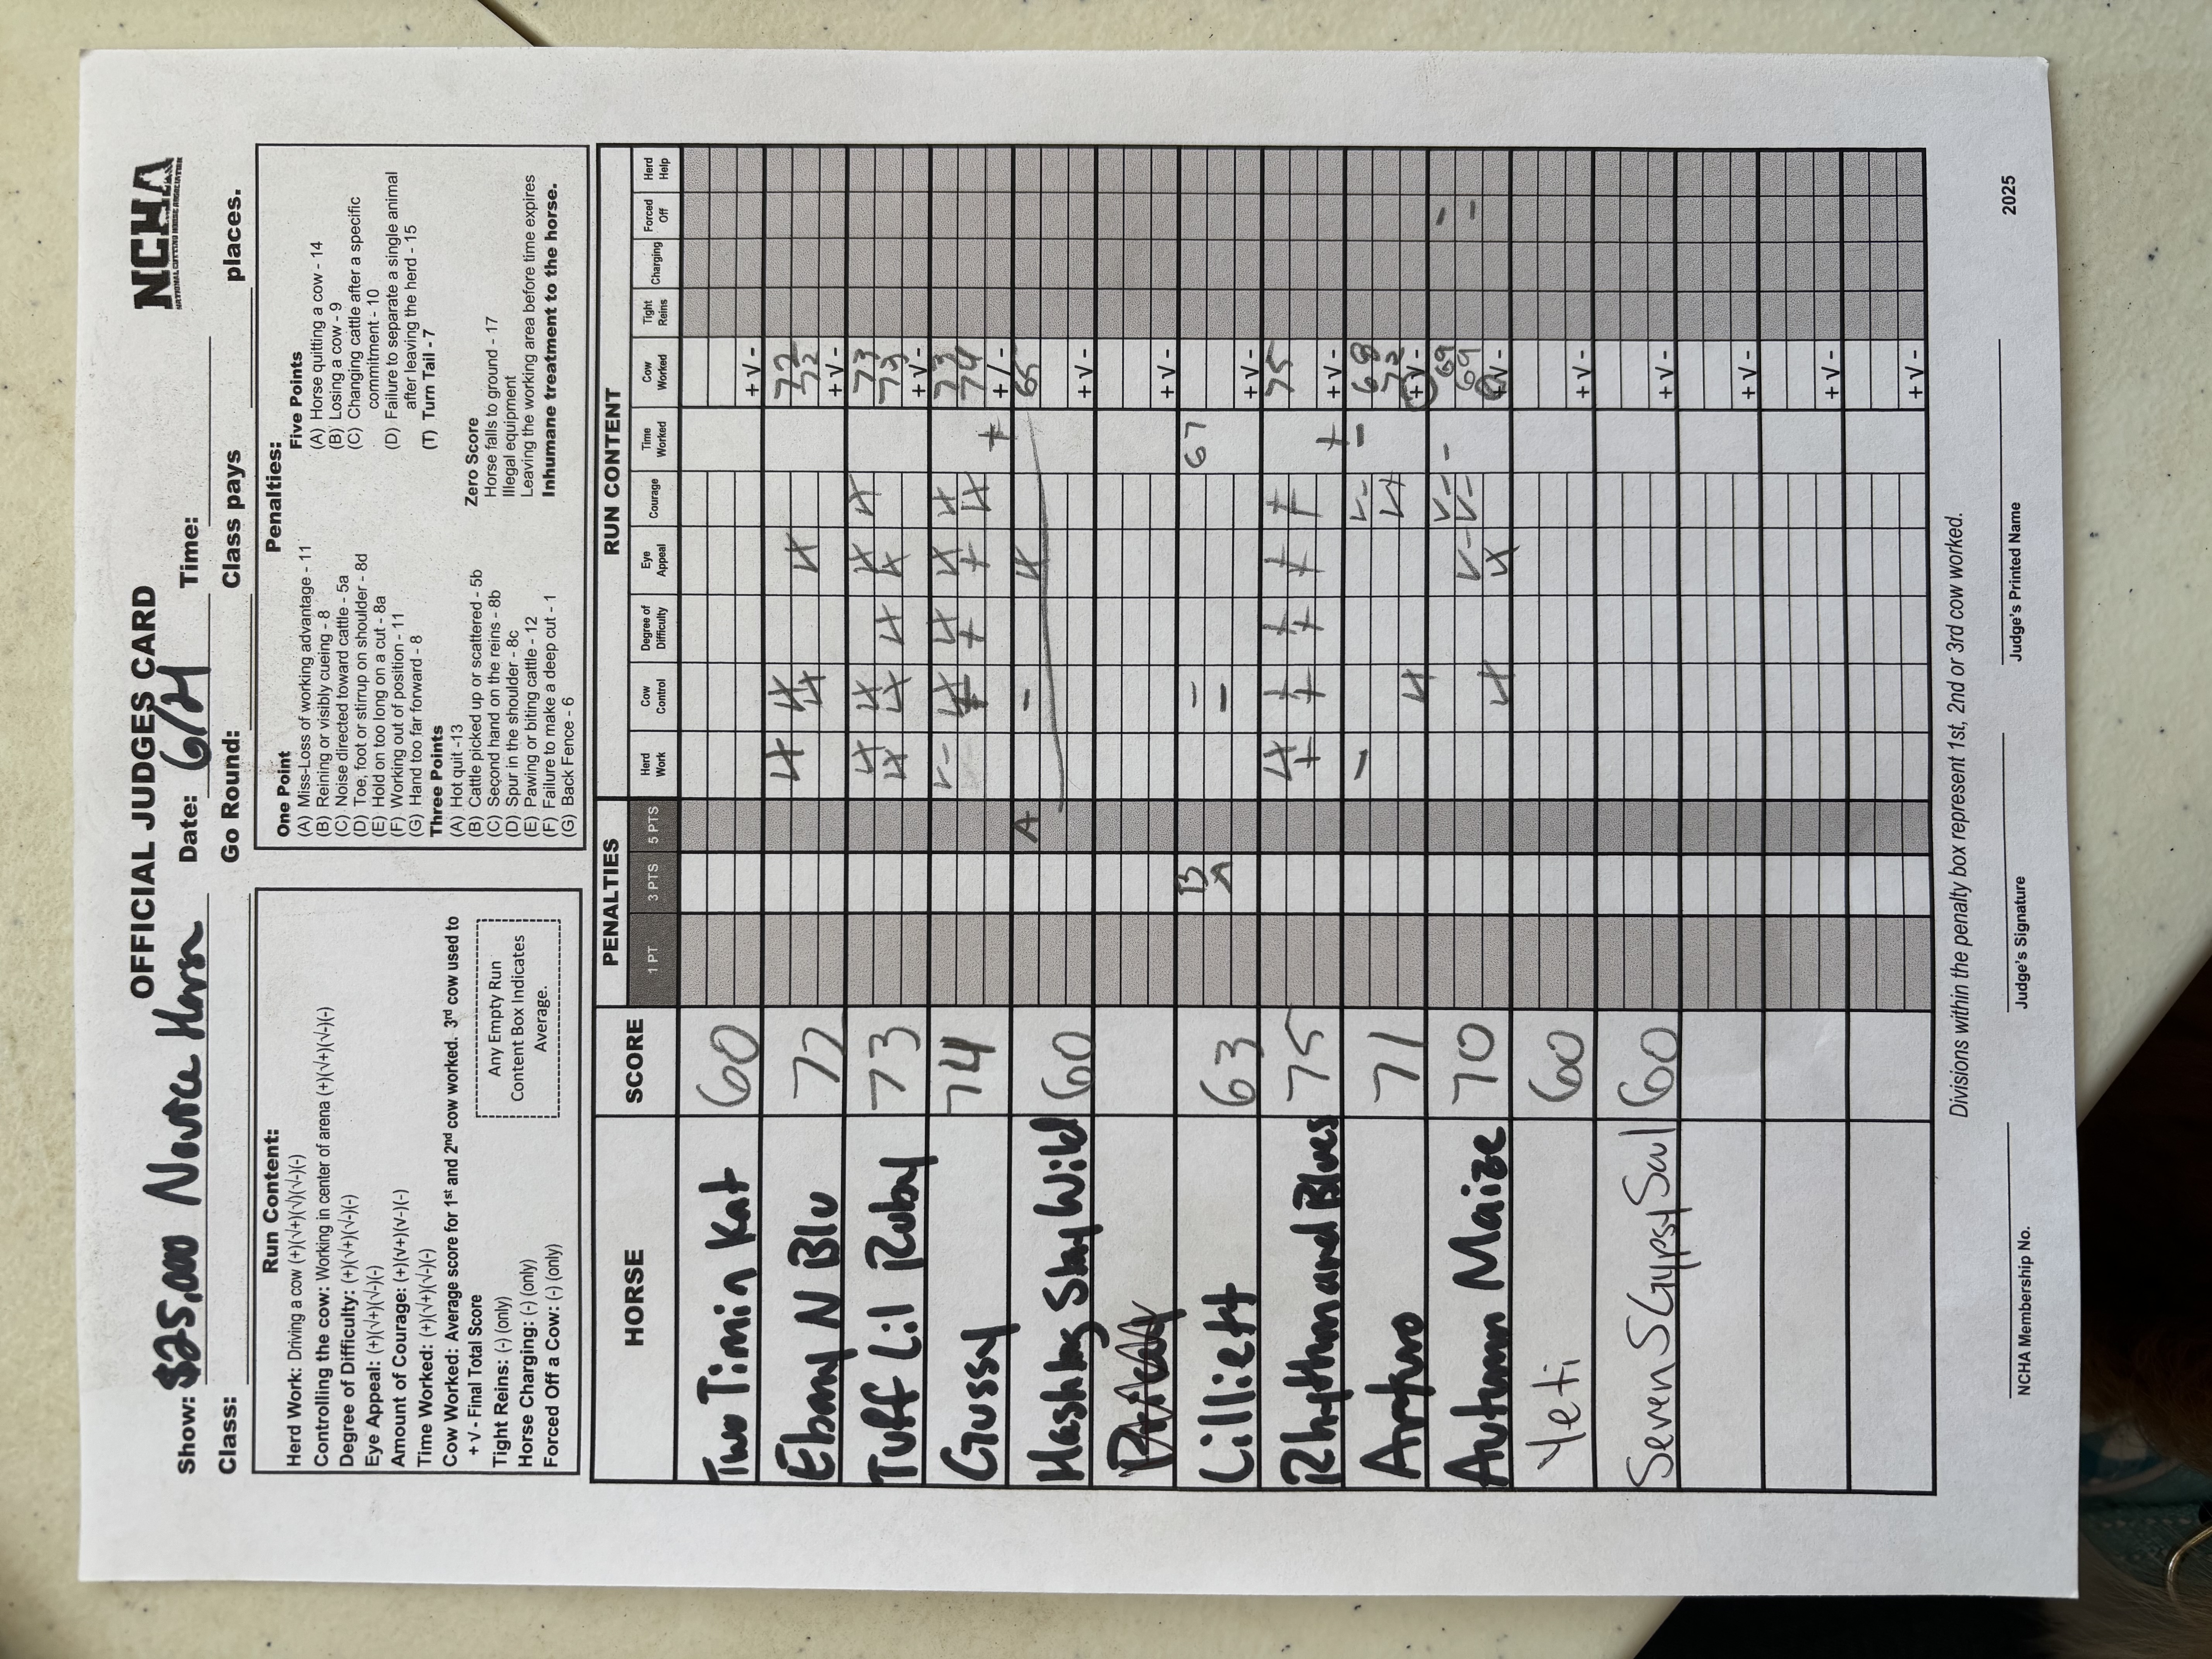 OFFICIAL JUDGES CARD
NCHA
NATIONAL CUTTING HORSE ASSOCIATION
Show: $25,000 Novice Horse Date: 6/14 Time:
Class: Go Round: Class pays places.
Run Content:
Herd Work: Driving a cow (+)(√+)(√)(√-)(-)
Controlling the cow: Working in center of arena (+)(√+)(√-)(-)
Degree of Difficulty: (+)(√+)(√-)(-)
Eye Appeal: (+)(√+)(√-)(-)
Amount of Courage: (+)(v+)(v-)(-)
Time Worked: (+)(√+)(√-)(-)
Cow Worked: Average score for 1st and 2nd cow worked. 3rd cow used to
+ V - Final Total Score
Tight Reins: (-) (only)
Horse Charging: (-) (only)
Forced Off a Cow: (-) (only)
Any Empty Run
Content Box Indicates
Average.
Penalties:
One Point
(A) Miss-Loss of working advantage - 11
(B) Reining or visibly cueing - 8
(C) Noise directed toward cattle - 5a
(D) Toe, foot or stirrup on shoulder - 8d
(E) Hold on too long on a cut - 8a
(F) Working out of position - 11
(G) Hand too far forward - 8
Three Points
(A) Hot quit -13
(B) Cattle picked up or scattered - 5b
(C) Second hand on the reins - 8b
(D) Spur in the shoulder - 8c
(E) Pawing or biting cattle - 12
(F) Failure to make a deep cut - 1
(G) Back Fence - 6
Five Points
(A) Horse quitting a cow - 14
(B) Losing a cow - 9
(C) Changing cattle after a specific
commitment - 10
(D) Failure to separate a single animal
after leaving the herd - 15
(T) Turn Tail - 7
Zero Score
Horse falls to ground - 17
Illegal equipment
Leaving the working area before time expires
Inhumane treatment to the horse.
HORSE SCORE PENALTIES RUN CONTENT
1 PT 3 PTS 5 PTS Herd Work Cow Control Degree of Difficulty Eye Appeal Courage Time Worked Cow Worked Tight Reins Charging Forced Off Herd Help
Two Timin Kat 60 + V -
Ebony N Blu 72 √+ √+ √+ √+ 72 72 + V -
Tuff Lil Ruby 73 √+ √+ √+ √+ √+ √+ √+ √+ 73 73 + V -
Gussy 74 √- √+ + √+ + √+ + √+ √+ + 73 74 + V -
Hashtag Stay Wild 60 A - √+ 65 + V -
+ V -
Lilliett 63 B A = - 67 + V -
Rhythm and Blues 75 √+ + + + + + + + + + 75 + V -
Arturo 71 - √+ √- √+ - 68 72 + V -
Autumn Maize 70 √+ √- √+ √- √- - 69 69 + V - - -
Yeti 60 + V -
Seven S Gypsy Sul 60 + V -
+ V -
+ V -
+ V -
Divisions within the penalty box represent 1st, 2nd or 3rd cow worked.
NCHA Membership No. Judge's Signature Judge's Printed Name 2025